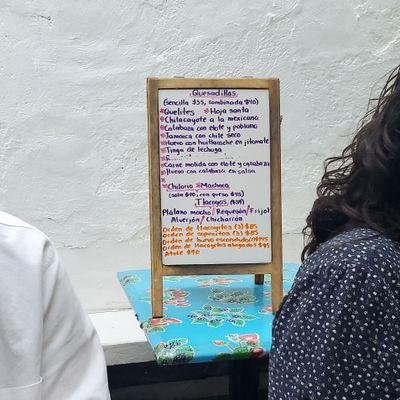 Quesadillas
(Sencilla $35, combinada $40)
*Quelites *Hoja santa
*Chilacayote a la mexicana
*Calabaza con elote y poblano
*Jamaica con chile seco
*Huevo con huitlacoche en jitomate
*Tinga de lechuga
*Carne molida con elote y calabaza
*Huevo con calabaza en salsa
*Chilorio *Machaca
(sola $40, con queso $45)
Tlacoyos ($35)
Plátano macho/Requesón/Frijol
Alverjón/Chicharrón
Orden de tlacoyitos (3) $85
Orden de sopecitos (3) $85
Orden de huevo escondido
Orden de tlacoyitos ahogados $95
Atole $40